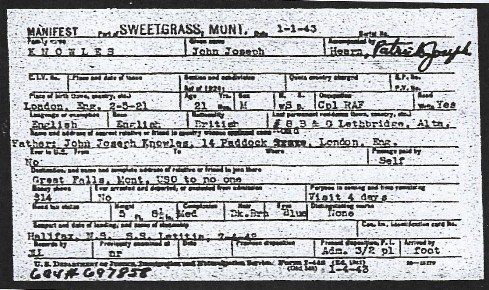 MANIFEST Port of SWEETGRASS, MONT. Date 1-1-43 Serial No.
Family name Given name Accompanied by
KNOWLES John Joseph Hearn, Patrick Joseph
C.I.V. No. Place and date of issue Section and subdivision Quota country charged R.P. No.
Act of 1924: P.V. No.
Place of birth (town, country, etc.) Age Yrs. Sex M. S. Occupation Read Write
London, Eng. 2-5-21 21 M S Cpl RAF Yes
Language or exemption Race Nationality Last permanent residence (town, country, etc.)
English English British # 8 B & G Lethbridge, Alta.
Name and address of nearest relative or friend in country whence alien came
Father: John Joseph Knowles, 14 Paddock London, Eng.
Ever in U.S. From To Where Passage paid by
No Self
Destination, and name and complete address of relative or friend to join there
Great Falls, Mont. USO to no one
Money shown Ever arrested and deported, or excluded from admission Purpose in coming and time remaining
$14 No Visit 4 days
Head tax status Height Complexion Hair Eyes Distinguishing marks
5 Med Dk.Brn Blue None
Seaport and date of landing, and name of steamship
Halifax, N.S. S.S. Letitia, 7-4-42
Records by Previously examined at Date Previous disposition Present disposition, P.I. Arrived by
nr Adm. 3/2 pl foot
U. S. Department of Justice, Immigration and Naturalization Service Form I-448
1-4-43